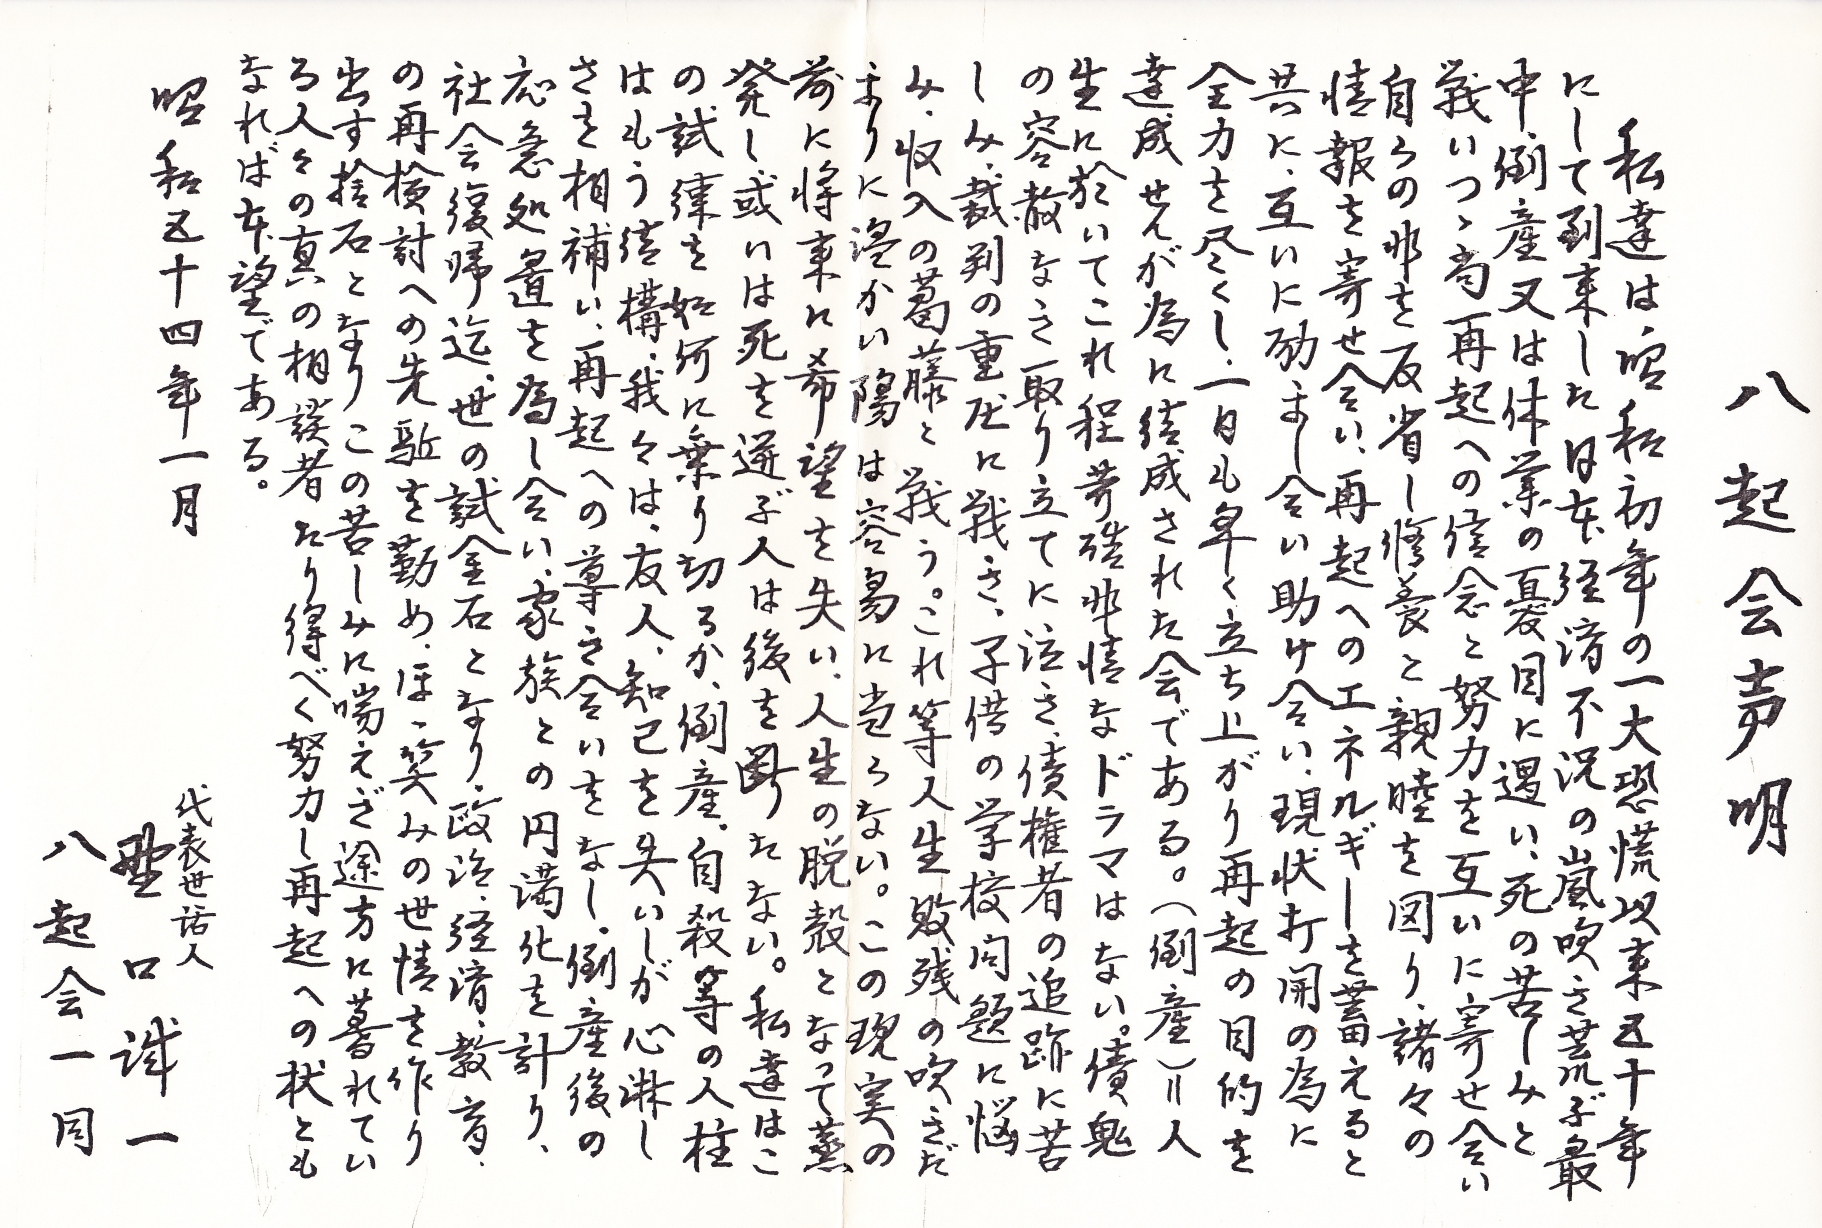 八起会声明
私達は、昭和初年の一大恐慌以来五十年
にして到来した日本経済不況の嵐吹き荒ぶ最
中、倒産又は休業の憂目に遇い、死の苦しみと
戦いつゝ尚再起への信念と努力を互いに寄せ合い
自らの非を反省し修養と親睦を図り、諸々の
情報を寄せ合い、再起へのエネルギーを蓄えると
共に、互いに励まし合い助け合い、現状打開の為に
全力を尽くし、一日も早く立ち上がり再起の目的を
達成せんが為に結成された会である。(倒産)=人
生に於いてこれ程苛酷非情なドラマはない。債鬼
の容赦なき取り立てに泣き、債権者の追跡に苦
しみ、裁判の重圧に戦き、子供の学校問題に悩
み、収入の葛藤と戦う。これ等人生敗残の吹きだ
まりに温かい陽は容易に当らない。この現実の
前に将来に希望を失い、人生の脱殻となって蒸
発し、或いは死を選ぶ人は後を断たない。私達はこ
の試練を如何に乗り切るか、倒産、自殺等の人柱
はもう結構、我々は、友人、知己を失いしが心淋し
さを相補い、再起への導き合いをなし、倒産後の
応急処置を為し合い、家族との円満化を計り、
社会復帰迄、世の試金石となり、政治、経済、教育、
の再検討への先駈を勤め、ほゝ笑みの世情を作り
出す捨石となりこの苦しみに喘えぎ途方に暮れてい
る人々の真の相談者たり得べく努力し再起への杖とも
なれば本望である。
昭和五十四年一月
代表世話人
野口誠一
八起会一同